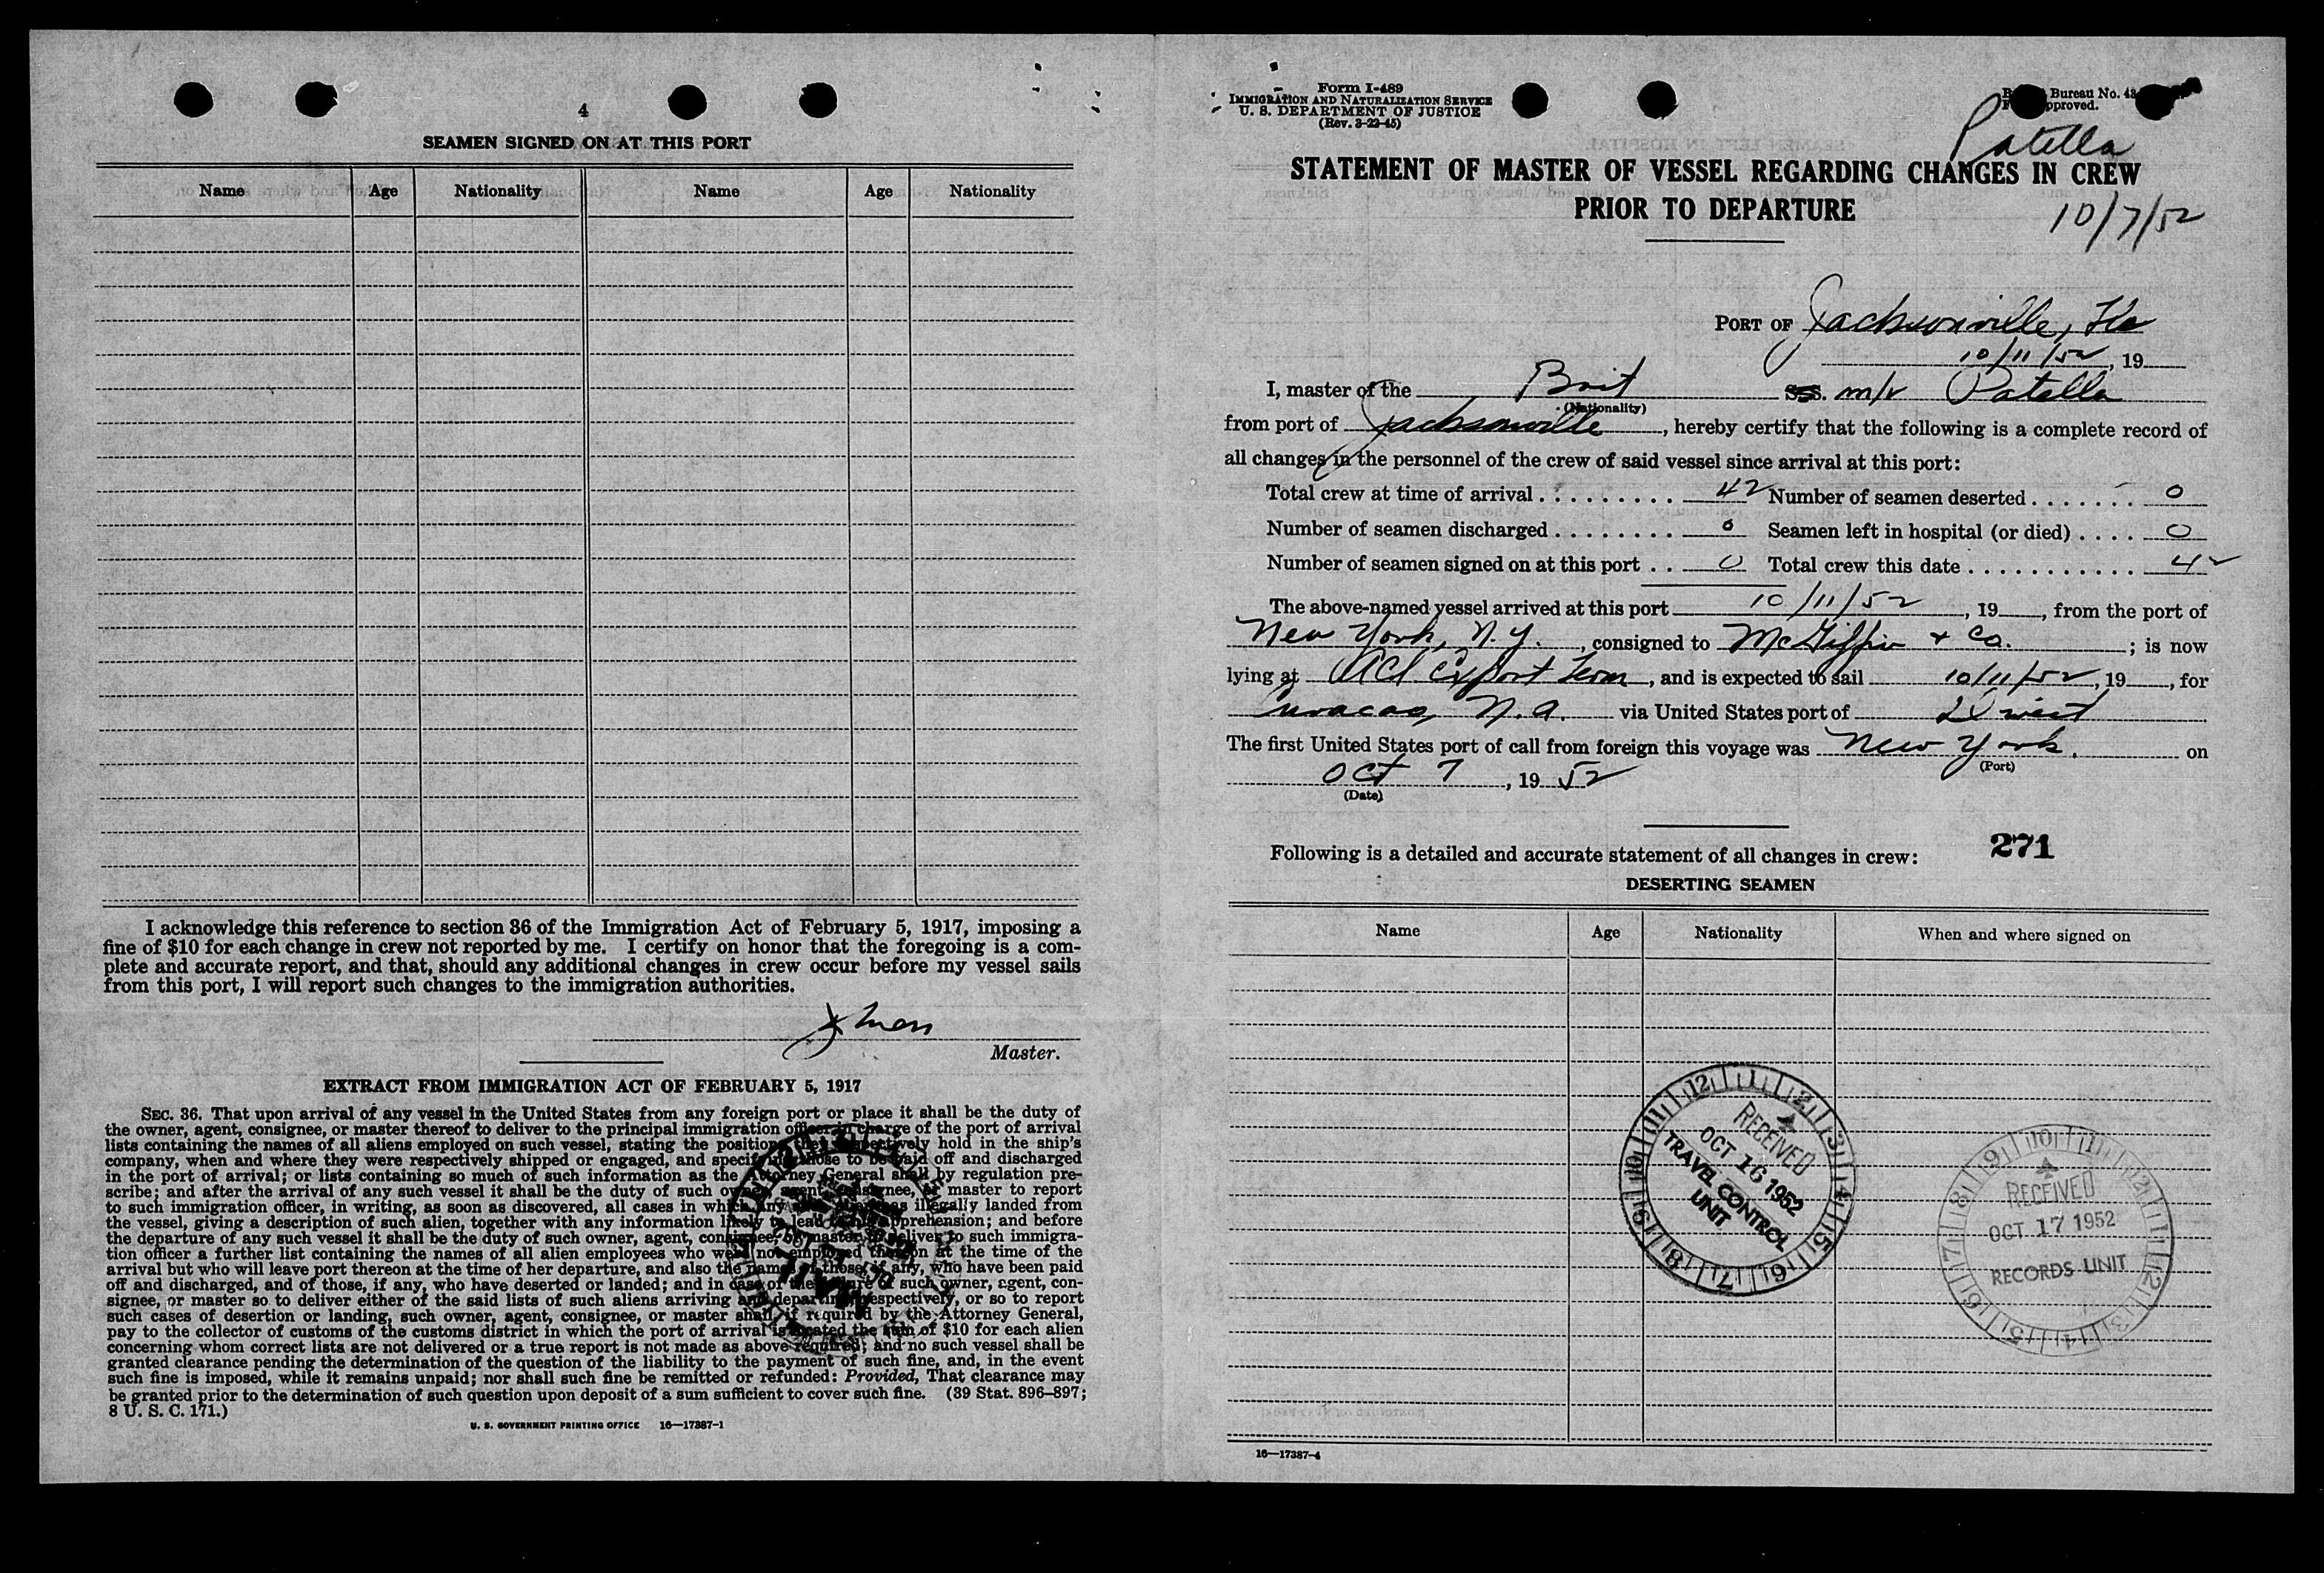 4
SEAMEN SIGNED ON AT THIS PORT
Name Age Nationality Name Age Nationality
I acknowledge this reference to section 36 of the Immigration Act of February 5, 1917, imposing a
fine of $10 for each change in crew not reported by me. I certify on honor that the foregoing is a com-
plete and accurate report, and that, should any additional changes in crew occur before my vessel sails
from this port, I will report such changes to the immigration authorities.
Master.
EXTRACT FROM IMMIGRATION ACT OF FEBRUARY 5, 1917
SEC. 36. That upon arrival of any vessel in the United States from any foreign port or place it shall be the duty of
the owner, agent, consignee, or master thereof to deliver to the principal immigration officer in charge of the port of arrival
lists containing the names of all aliens employed on such vessel, stating the positions they respectively hold in the ship's
company, when and where they were respectively shipped or engaged, and specifying those to be paid off and discharged
in the port of arrival; or lists containing so much of such information as the Attorney General shall by regulation pre-
scribe; and after the arrival of any such vessel it shall be the duty of such owner, agent, consignee, or master to report
to such immigration officer, in writing, as soon as discovered, all cases in which any alien has illegally landed from
the vessel, giving a description of such alien, together with any information likely to lead to his apprehension; and before
the departure of any such vessel it shall be the duty of such owner, agent, consignee, or master to deliver to such immigra-
tion officer a further list containing the names of all alien employees who were not employed thereon at the time of the
arrival but who will leave port thereon at the time of her departure, and also the names of those, if any, who have been paid
off and discharged, and of those, if any, who have deserted or landed; and in case of the failure of such owner, agent, con-
signee, or master so to deliver either of the said lists of such aliens arriving and departing, respectively, or so to report
such cases of desertion or landing, such owner, agent, consignee, or master shall, if required by the Attorney General,
pay to the collector of customs of the customs district in which the port of arrival is located the sum of $10 for each alien
concerning whom correct lists are not delivered or a true report is not made as above required; and no such vessel shall be
granted clearance pending the determination of the question of the liability to the payment of such fine, and, in the event
such fine is imposed, while it remains unpaid; nor shall such fine be remitted or refunded: Provided, That clearance may
be granted prior to the determination of such question upon deposit of a sum sufficient to cover such fine. (39 Stat. 896–897;
8 U. S. C. 171.)
U. S. GOVERNMENT PRINTING OFFICE 16—17387-1
Form I-489
IMMIGRATION AND NATURALIZATION SERVICE
U. S. DEPARTMENT OF JUSTICE
(Rev. 3-22-45)
Bureau No. 43
pproved.
Patella
STATEMENT OF MASTER OF VESSEL REGARDING CHANGES IN CREW
PRIOR TO DEPARTURE
10/7/52
PORT OF Jacksonville, Fla
10/11/52, 19
I, master of the Brit SS. m/v Patella
(Nationality)
from port of Jacksonville, hereby certify that the following is a complete record of
all changes in the personnel of the crew of said vessel since arrival at this port:
Total crew at time of arrival 42 Number of seamen deserted 0
Number of seamen discharged 0 Seamen left in hospital (or died) 0
Number of seamen signed on at this port 0 Total crew this date 42
The above-named vessel arrived at this port 10/11/52, 19, from the port of
New York, N.Y., consigned to McGiffin & Co.; is now
lying at ACL Export Term, and is expected to sail 10/11/52, 19, for
Curacao, N.A. via United States port of Direct
The first United States port of call from foreign this voyage was New York. on
(Port)
Oct 7, 1952
(Date)
Following is a detailed and accurate statement of all changes in crew: 271
DESERTING SEAMEN
Name Age Nationality When and where signed on
RECEIVED
OCT 16 1952
TRAVEL CONTROL
UNIT
RECEIVED
OCT 17 1952
RECORDS UNIT
16—17387-4